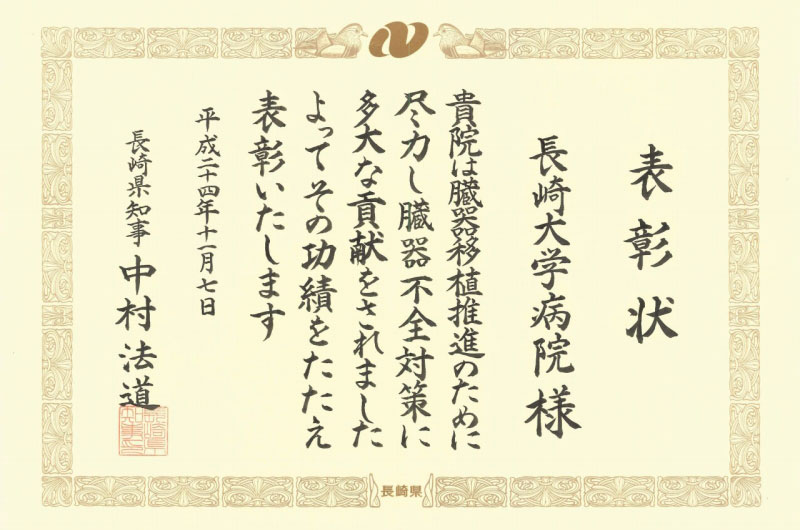 表彰状
長崎大学病院様
貴院は臓器移植推進のために
尽力し臓器不全対策に
多大な貢献をされました
よってその功績をたたえ
表彰いたします
平成二十四年十一月七日
長崎県知事 中村法道
長崎県